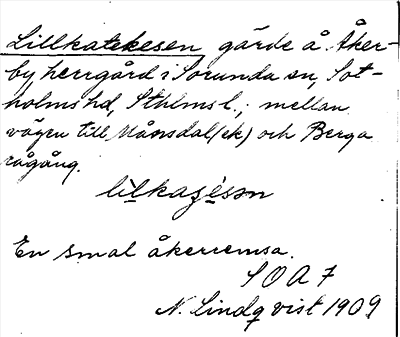 Lillkatekesen gärde å Åker-
by herrgård i Sorunda sn, Sot-
holms hd, Sthlms l.; mellan
vägen till Månsdal (ek) och Berga
rågång.
En smal åkerremsa.
S O A F
N. Lindqvist 1909